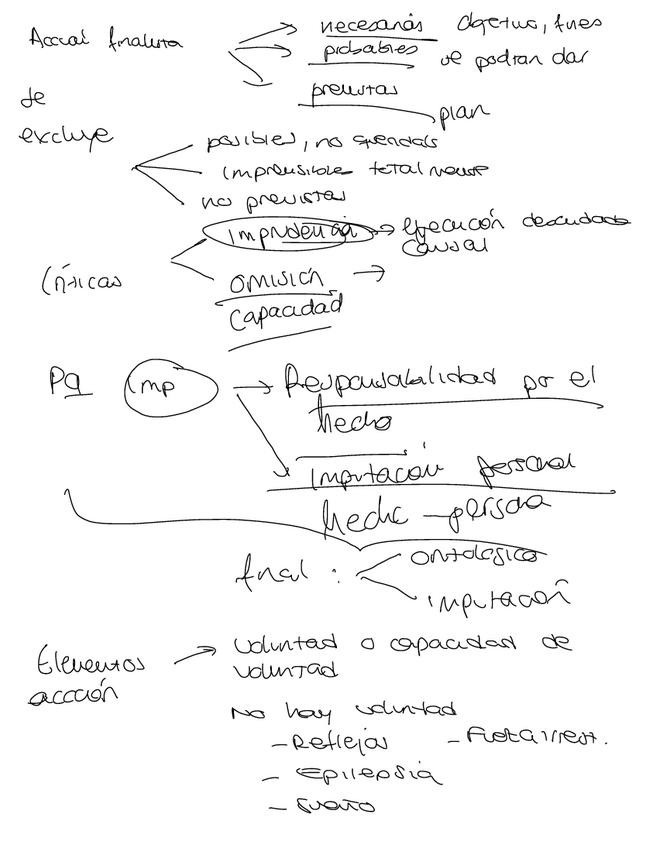 Acción finalista
necesarias objetivo, fines
probables se podrían dar
previstas
plan
se
excluye
posibles, no queridas
imprevisible totalmente
no previstas
Críticas
imprudencia → ejecución descuidada
causal
omisión →
capacidad
Pq imp → Responsabilidad por el
hecho
imputación personal
hecho - persona
final :
ontológico
imputación
Elementos → voluntad o capacidad de
acción voluntad
No hay voluntad
- Reflejos - Fuerza irrest.
- Epilepsia
- sueño